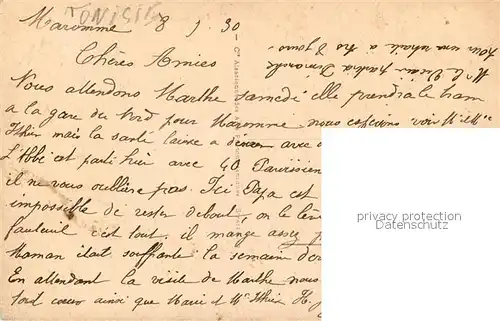 TUNISIE
Maromme 8 9 30
Chères Amies
Nous attendons Marthe samedi elle prendra le tram
a la gare du Nord pour Maromme nous espérons voir Mr et Mme
mais la santé laisse a désirer avec
L'Abbé est parti hier avec 40 Parisiens
il ne vous oubliera pas. Ici Papa est
impossible de rester debout, on le lève
fauteuil c'est tout. il mange assez
Maman était souffrante la semaine der
En attendant la visite de Marthe nous
tout coeur ainsi que Marie et Mr H.
Mr le Vicaire partira Dimanche
pour une retraite de 8 jours
privacy protection
Datenschutz